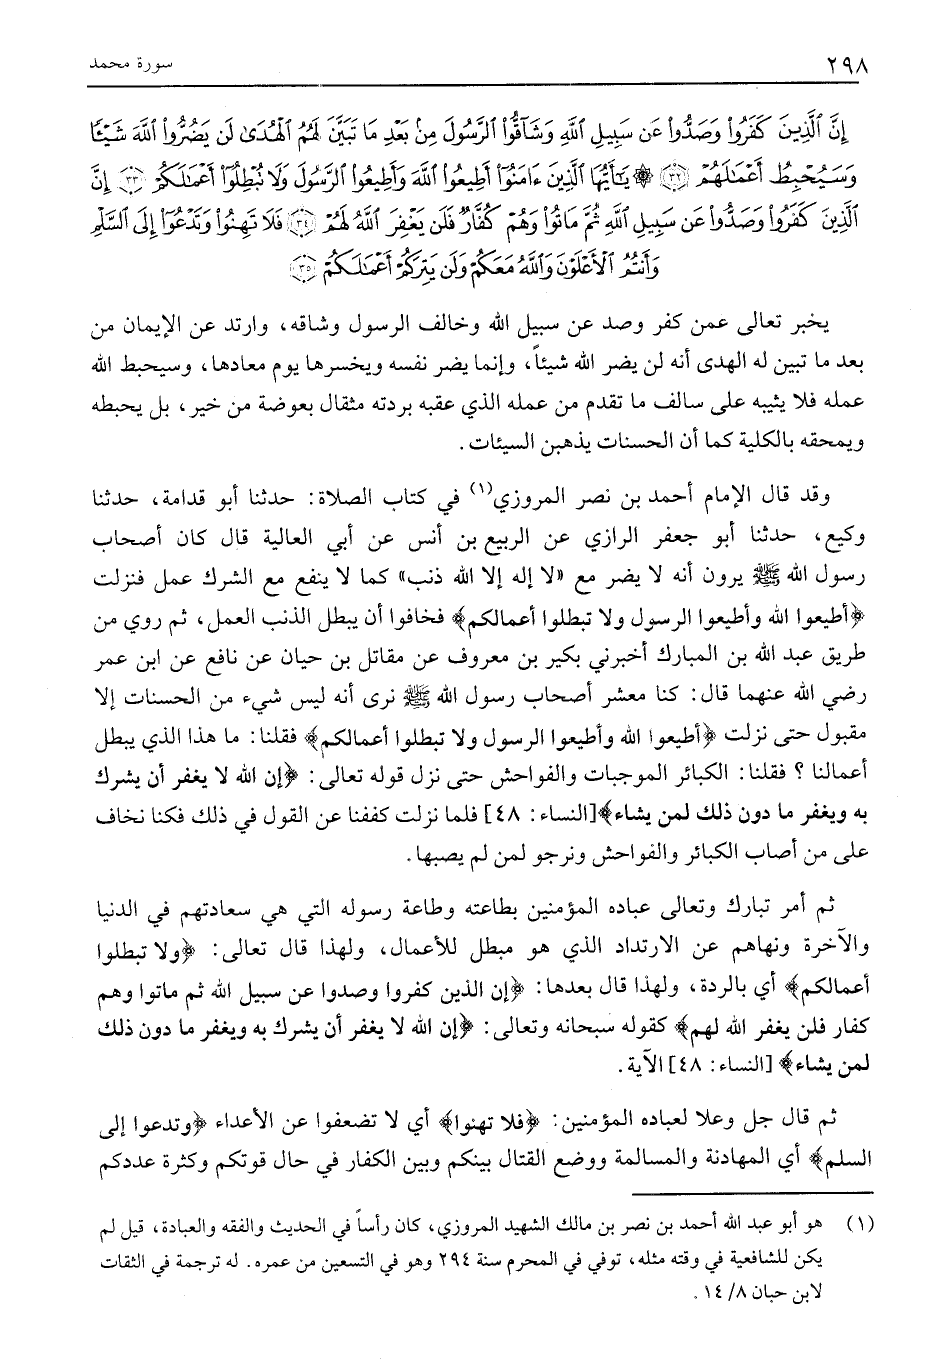 ٢٩٨ سورة محمد
إِنَّ الَّذِينَ كَفَرُوا۟ وَصَدُّوا۟ عَن سَبِيلِ اللَّهِ وَشَاقُّوا۟ الرَّسُولَ مِنۢ بَعْدِ مَا تَبَيَّنَ لَهُمُ الْهُدَىٰ لَن يَضُرُّوا۟ اللَّهَ شَيْـًٔا
وَسَيُحْبِطُ أَعْمَـٰلَهُمْ ﴿٣٢﴾ ۞ يَـٰٓأَيُّهَا الَّذِينَ ءَامَنُوٓا۟ أَطِيعُوا۟ اللَّهَ وَأَطِيعُوا۟ الرَّسُولَ وَلَا تُبْطِلُوٓا۟ أَعْمَـٰلَكُمْ ﴿٣٣﴾ إِنَّ
الَّذِينَ كَفَرُوا۟ وَصَدُّوا۟ عَن سَبِيلِ اللَّهِ ثُمَّ مَاتُوا۟ وَهُمْ كُفَّارٌ فَلَن يَغْفِرَ اللَّهُ لَهُمْ ﴿٣٤﴾ فَلَا تَهِنُوا۟ وَتَدْعُوٓا۟ إِلَى السَّلْمِ
وَأَنتُمُ الْأَعْلَوْنَ وَاللَّهُ مَعَكُمْ وَلَن يَتِرَكُمْ أَعْمَـٰلَكُمْ ﴿٣٥﴾
يخبر تعالى عمن كفر وصد عن سبيل الله وخالف الرسول وشاقه، وارتد عن الإيمان من
بعد ما تبين له الهدى أنه لن يضر الله شيئاً، وإنما يضر نفسه ويخسرها يوم معادها، وسيحبط الله
عمله فلا يثيبه على سالف ما تقدم من عمله الذي عقبه بردته مثقال بعوضة من خير، بل يحبطه
ويمحقه بالكلية كما أن الحسنات يذهبن السيئات.
وقد قال الإمام أحمد بن نصر المروزي(١) في كتاب الصلاة: حدثنا أبو قدامة، حدثنا
وكيع، حدثنا أبو جعفر الرازي عن الربيع بن أنس عن أبي العالية قال كان أصحاب
رسول الله ﷺ يرون أنه لا يضر مع «لا إله إلا الله ذنب» كما لا ينفع مع الشرك عمل فنزلت
﴿أطيعوا الله وأطيعوا الرسول ولا تبطلوا أعمالكم﴾ فخافوا أن يبطل الذنب العمل، ثم روي من
طريق عبد الله بن المبارك أخبرني بكير بن معروف عن مقاتل بن حيان عن نافع عن ابن عمر
رضي الله عنهما قال: كنا معشر أصحاب رسول الله ﷺ نرى أنه ليس شيء من الحسنات إلا
مقبول حتى نزلت ﴿أطيعوا الله وأطيعوا الرسول ولا تبطلوا أعمالكم﴾ فقلنا: ما هذا الذي يبطل
أعمالنا ؟ فقلنا: الكبائر الموجبات والفواحش حتى نزل قوله تعالى: ﴿إن الله لا يغفر أن يشرك
به ويغفر ما دون ذلك لمن يشاء﴾[النساء: ٤٨] فلما نزلت كففنا عن القول في ذلك فكنا نخاف
على من أصاب الكبائر والفواحش ونرجو لمن لم يصبها.
ثم أمر تبارك وتعالى عباده المؤمنين بطاعته وطاعة رسوله التي هي سعادتهم في الدنيا
والآخرة ونهاهم عن الارتداد الذي هو مبطل للأعمال، ولهذا قال تعالى: ﴿ولا تبطلوا
أعمالكم﴾ أي بالردة، ولهذا قال بعدها: ﴿إن الذين كفروا وصدوا عن سبيل الله ثم ماتوا وهم
كفار فلن يغفر الله لهم﴾ كقوله سبحانه وتعالى: ﴿إن الله لا يغفر أن يشرك به ويغفر ما دون ذلك
لمن يشاء﴾ [النساء: ٤٨] الآية.
ثم قال جل وعلا لعباده المؤمنين: ﴿فلا تهنوا﴾ أي لا تضعفوا عن الأعداء ﴿وتدعوا إلى
السلم﴾ أي المهادنة والمسالمة ووضع القتال بينكم وبين الكفار في حال قوتكم وكثرة عددكم
(١) هو أبو عبد الله أحمد بن نصر بن مالك الشهيد المروزي، كان رأساً في الحديث والفقه والعبادة، قيل لم
يكن للشافعية في وقته مثله، توفي في المحرم سنة ٢٩٤ وهو في التسعين من عمره. له ترجمة في الثقات
لابن حبان ٨/ ١٤.